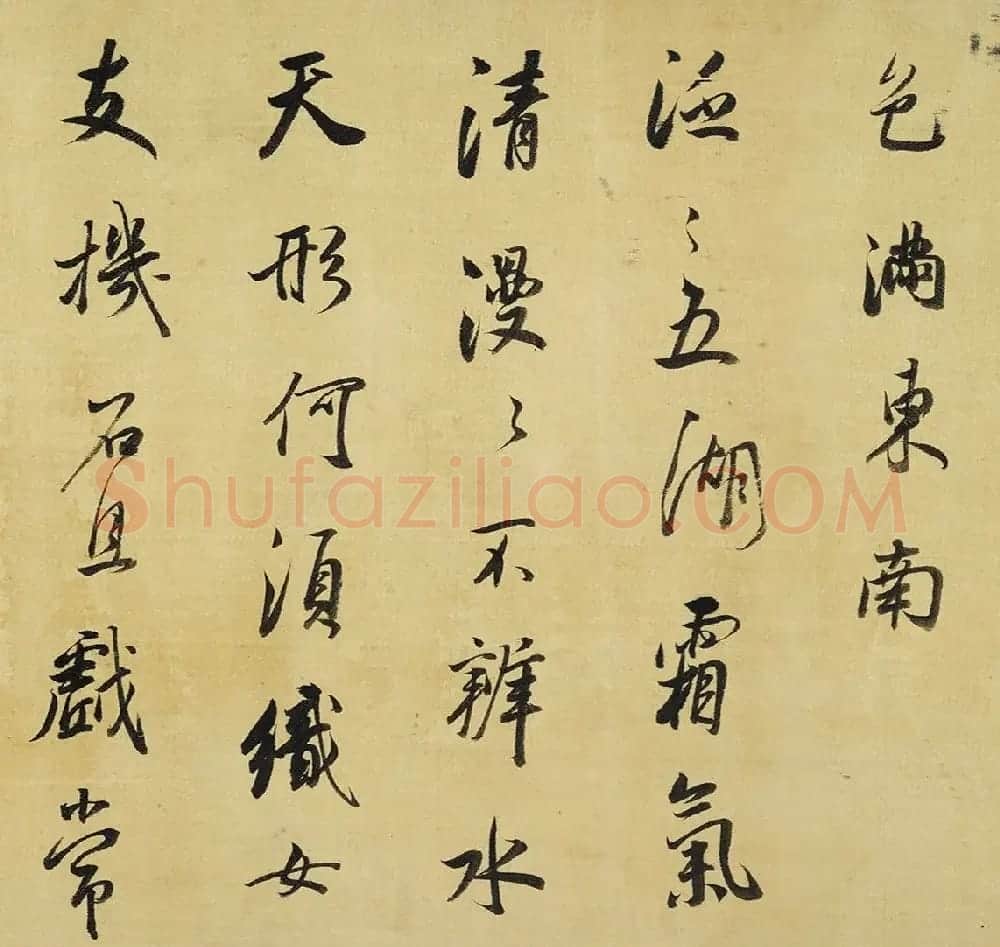 色滿東南
泛〻五湖霜氣
清漫〻不辨水
天形何須織女
支機石且戲常
Shufaziliao.COM